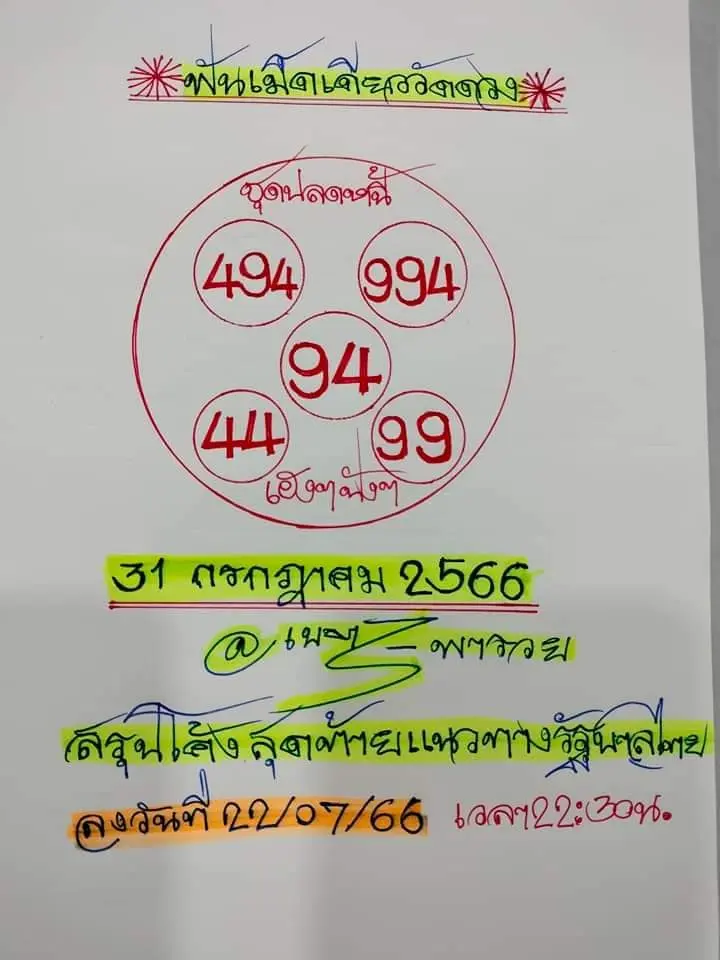 ฟันเม็ดเดียววัดดวง
ชุดปลดหนี้
494 994
94
44 99
เฮงๆปังๆ
31 กรกฎาคม 2566
@ พารวย
สรุปโค้งสุดท้ายแนวทางรัฐบาลไทย
ลงวันที่ 22/07/66 เวลา22:30น.